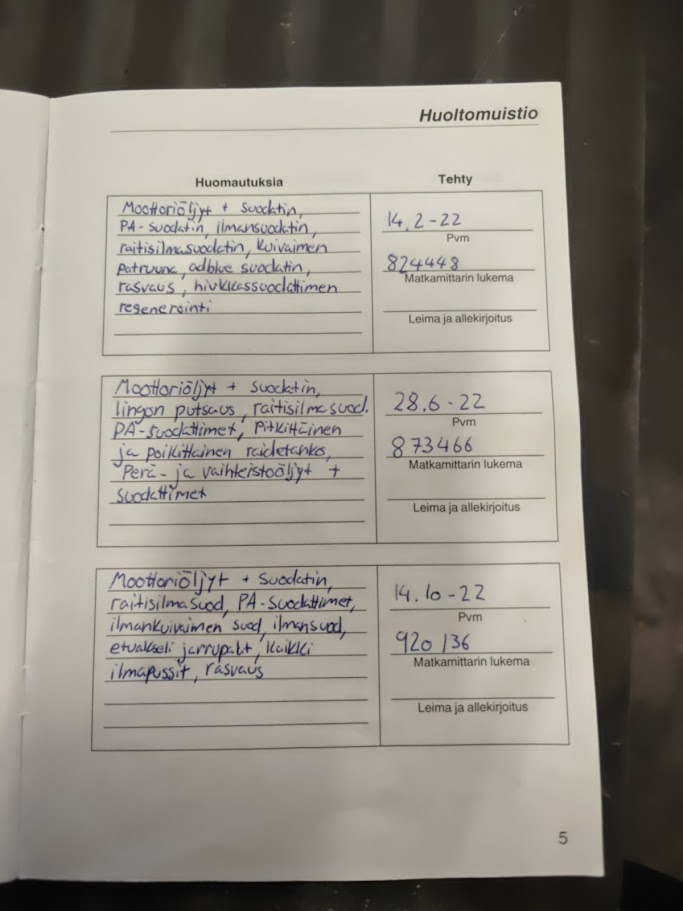 Huoltomuistio
Huomautuksia
Tehty
Moottoriöljyt + suodatin,
PA-suodatin, ilmansuodatin,
raitisilmasuodatin, kuivaimen
patruuna, adblue suodatin,
rasvaus, hiukkassuodattimen
regenerointi
14.2-22
Pvm
824448
Matkamittarin lukema
Leima ja allekirjoitus
Moottoriöljyt + suodatin,
lingon putsaus, raitisilmasuod.
PA-suodattimet, Pitkittäinen
ja poikittainen raidetanko,
Perä- ja vaihteistoöljyt +
suodattimet
28.6-22
Pvm
873466
Matkamittarin lukema
Leima ja allekirjoitus
Moottoriöljyt + suodatin,
raitisilmasuod, PA-suodattimet,
ilmankuivaimen suod, ilmansuod,
etuakseli jarrupalat, kaikki
ilmapussit, rasvaus
14.10-22
Pvm
920136
Matkamittarin lukema
Leima ja allekirjoitus
5